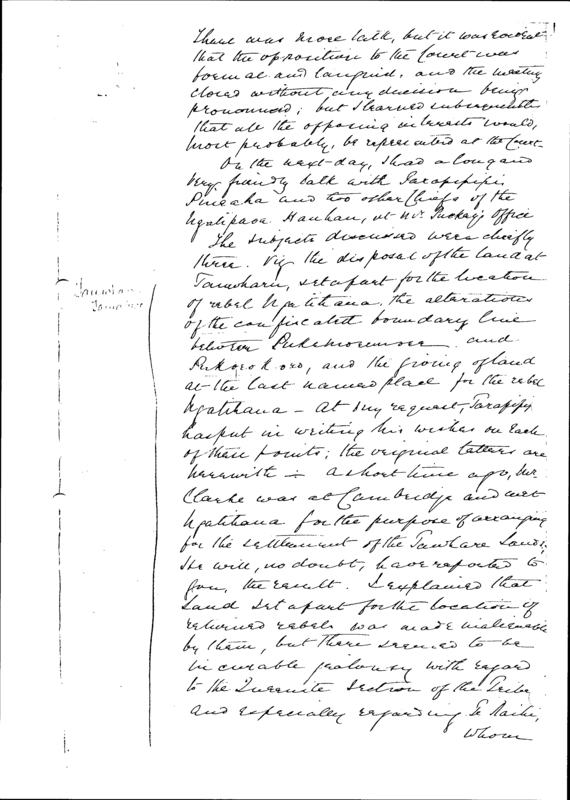 There was more talk, but it was evident
that the opposition to the Court was
formal and languid, and the meeting
closed without any decision being
pronounced; but I learned subsequently
that all the opposing interests would,
most probably, be represented at the Court.
On the next day, I had a long and
very friendly talk with Tarapipipi,
and two other Chiefs of the
Ngatipaoa Hauhau, at Mr. Puckey's office
The subjects discussed were chiefly
three. Viz the disposal of the land at
Tauwhare, set apart for the location
of rebel Ngatihaua, the alterations
of the confiscated boundary line
between Pukemoremore and
Pukorokoro, and the giving of land
at the last named place for the rebel
Ngatihaua – At my request, Tarapipi
has put in writing his wishes on each
of these points; the original letters are
herewith – A short time ago, Mr.
Clarke was at Cambridge and met
Ngatihaua for the purpose of arranging
for the settlement of the Tauwhare Lands;
He will, no doubt, have reported to
you, the result. I explained that
Land set apart for the location of
returned rebels was made inalienable
by them, but there seemed to be
incurable jealousy with regard
to the Queenite Section of the Tribe
and especially regarding Te Raihi,
whom